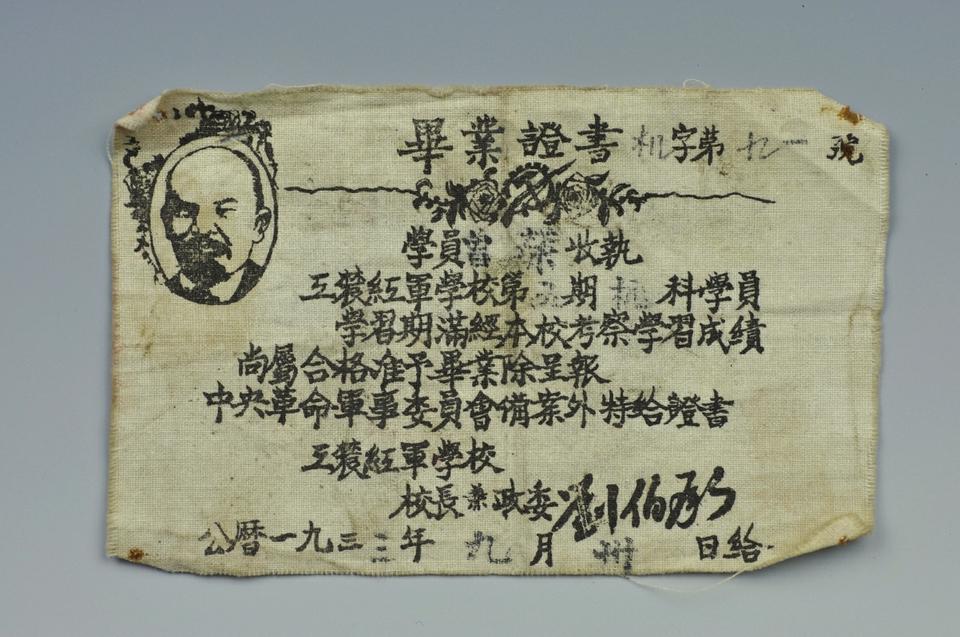 畢業證書 机字第九一號
學員曾 收執
工農紅軍學校第五期 科學員
學習期滿經本校考察學習成績
尚屬合格准予畢業除呈報
中央革命軍事委員會備案外特給證書
工農紅軍學校
校長兼政委劉伯承
公曆一九三三年九月卅日給